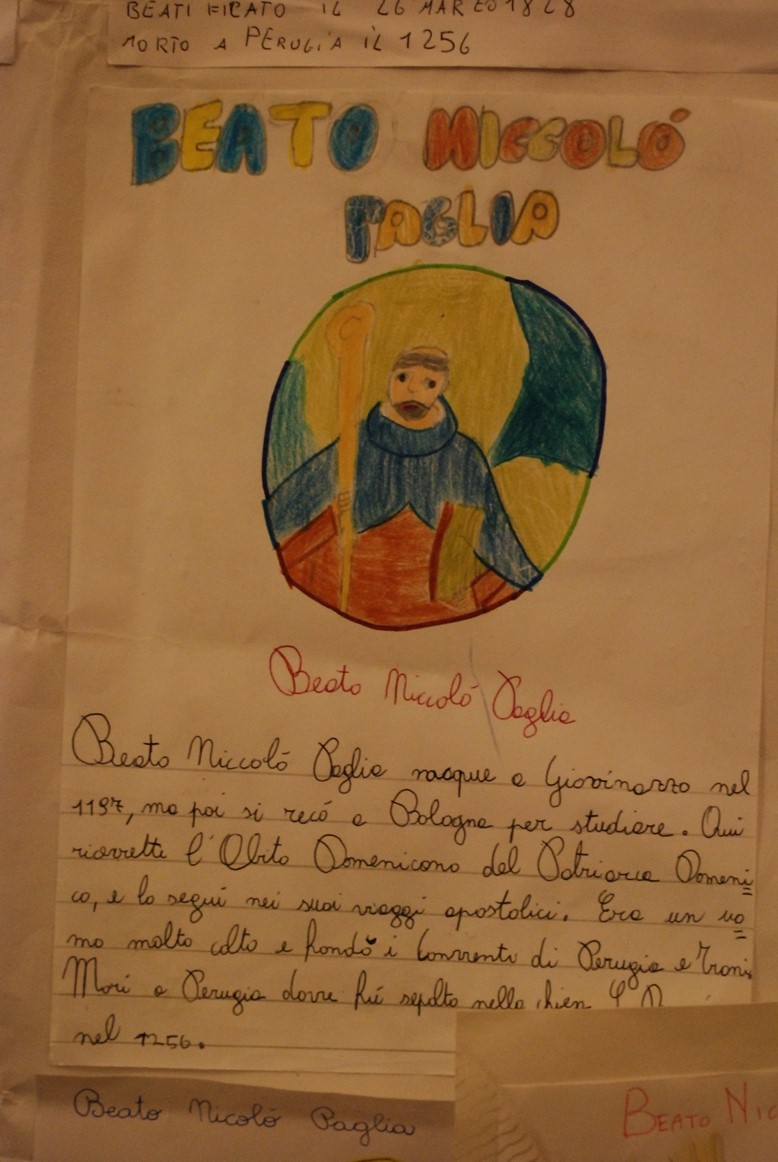 BEATIFICATO IL 26 MARZO 1828
MORTO A PERUGIA IL 1256
BEATO NICCOLÓ
PAGLIA
Beato Niccoló Paglia
Beato Niccoló Paglia nacque a Giovinazzo nel
1197, ma poi si recó a Bologna per studiare. Qui
ricevette l'Abito Domenicano dal Patriarca Domeni
co, e lo seguí nei suoi viaggi apostolici. Era un uo
mo molto colto e fondò i Conventi di Perugia e Trani.
Morí a Perugia dove fú sepolto nella
nel 1256.
Beato Nicoló Paglia
BEATO